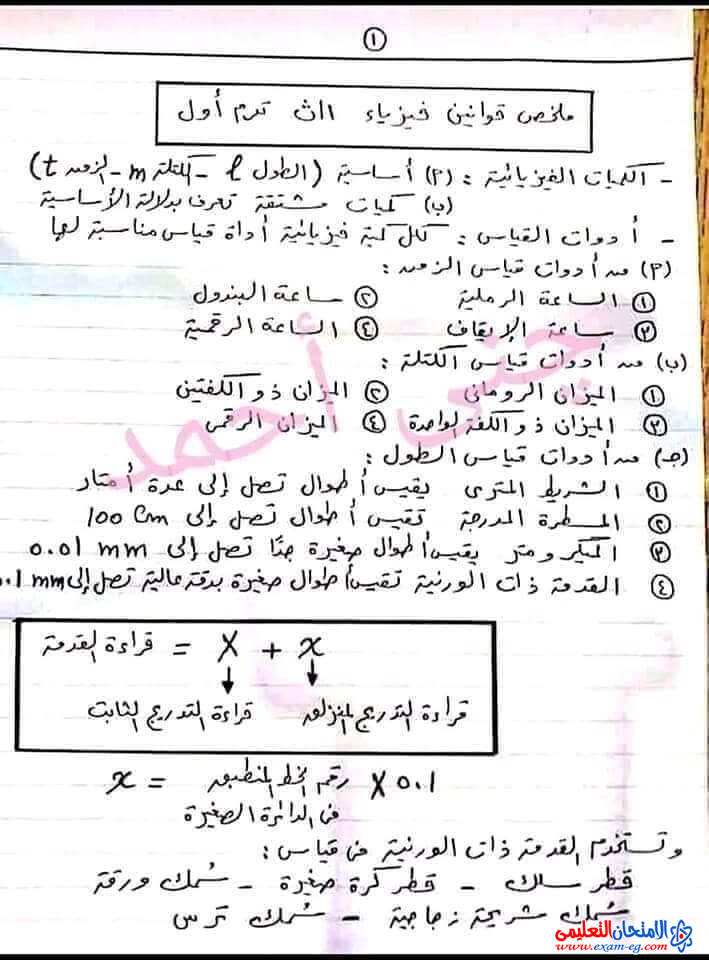 ١
ملخص قوانين فيزياء ١اث ترم أول
- الكميات الفيزيائية : (٢) أساسية (الطول l - الكتلة m - الزمن t)
(ب) كميات مشتقة تعرف بدلالة الأساسية
- أدوات القياس : لكل كمية فيزيائية أداة قياس مناسبة لها
(٢) من أدوات قياس الزمن :
١ الساعة الرملية ٢ ساعة البندول
٣ ساعة الإيقاف ٤ الساعة الرقمية
(ب) من أدوات قياس الكتلة :
١ الميزان الرومانى ٢ الميزان ذو الكفتين
٣ الميزان ذو الكفة الواحدة ٤ الميزان الرقمى
(جـ) من أدوات قياس الطول :
١ الشريط المترى يقيس أطوال تصل إلى عدة أمتار
٢ المسطرة المدرجة تقيس أطوال تصل إلى 100 Cm
٣ الميكرومتر يقيس أطوال صغيرة جدًا تصل إلى 0.01 mm
٤ القدمة ذات الورنية تقيس أطوال صغيرة بدقة عالية تصل إلى 0.1 mm
قراءة القدمة = X + x
قراءة التدريج الثابت قراءة التدريج المنزلق
x = رقم الخط المنطبق X 0.1
فى الدائرة الصغيرة
وتستخدم القدمة ذات الورنية فى قياس :
قطر سلك - قطر كرة صغيرة - سُمك ورقة
سُمك شريحة زجاجية - سُمك ترس
جنى أحمد
الامتحان التعليمى
www.exam-eg.com